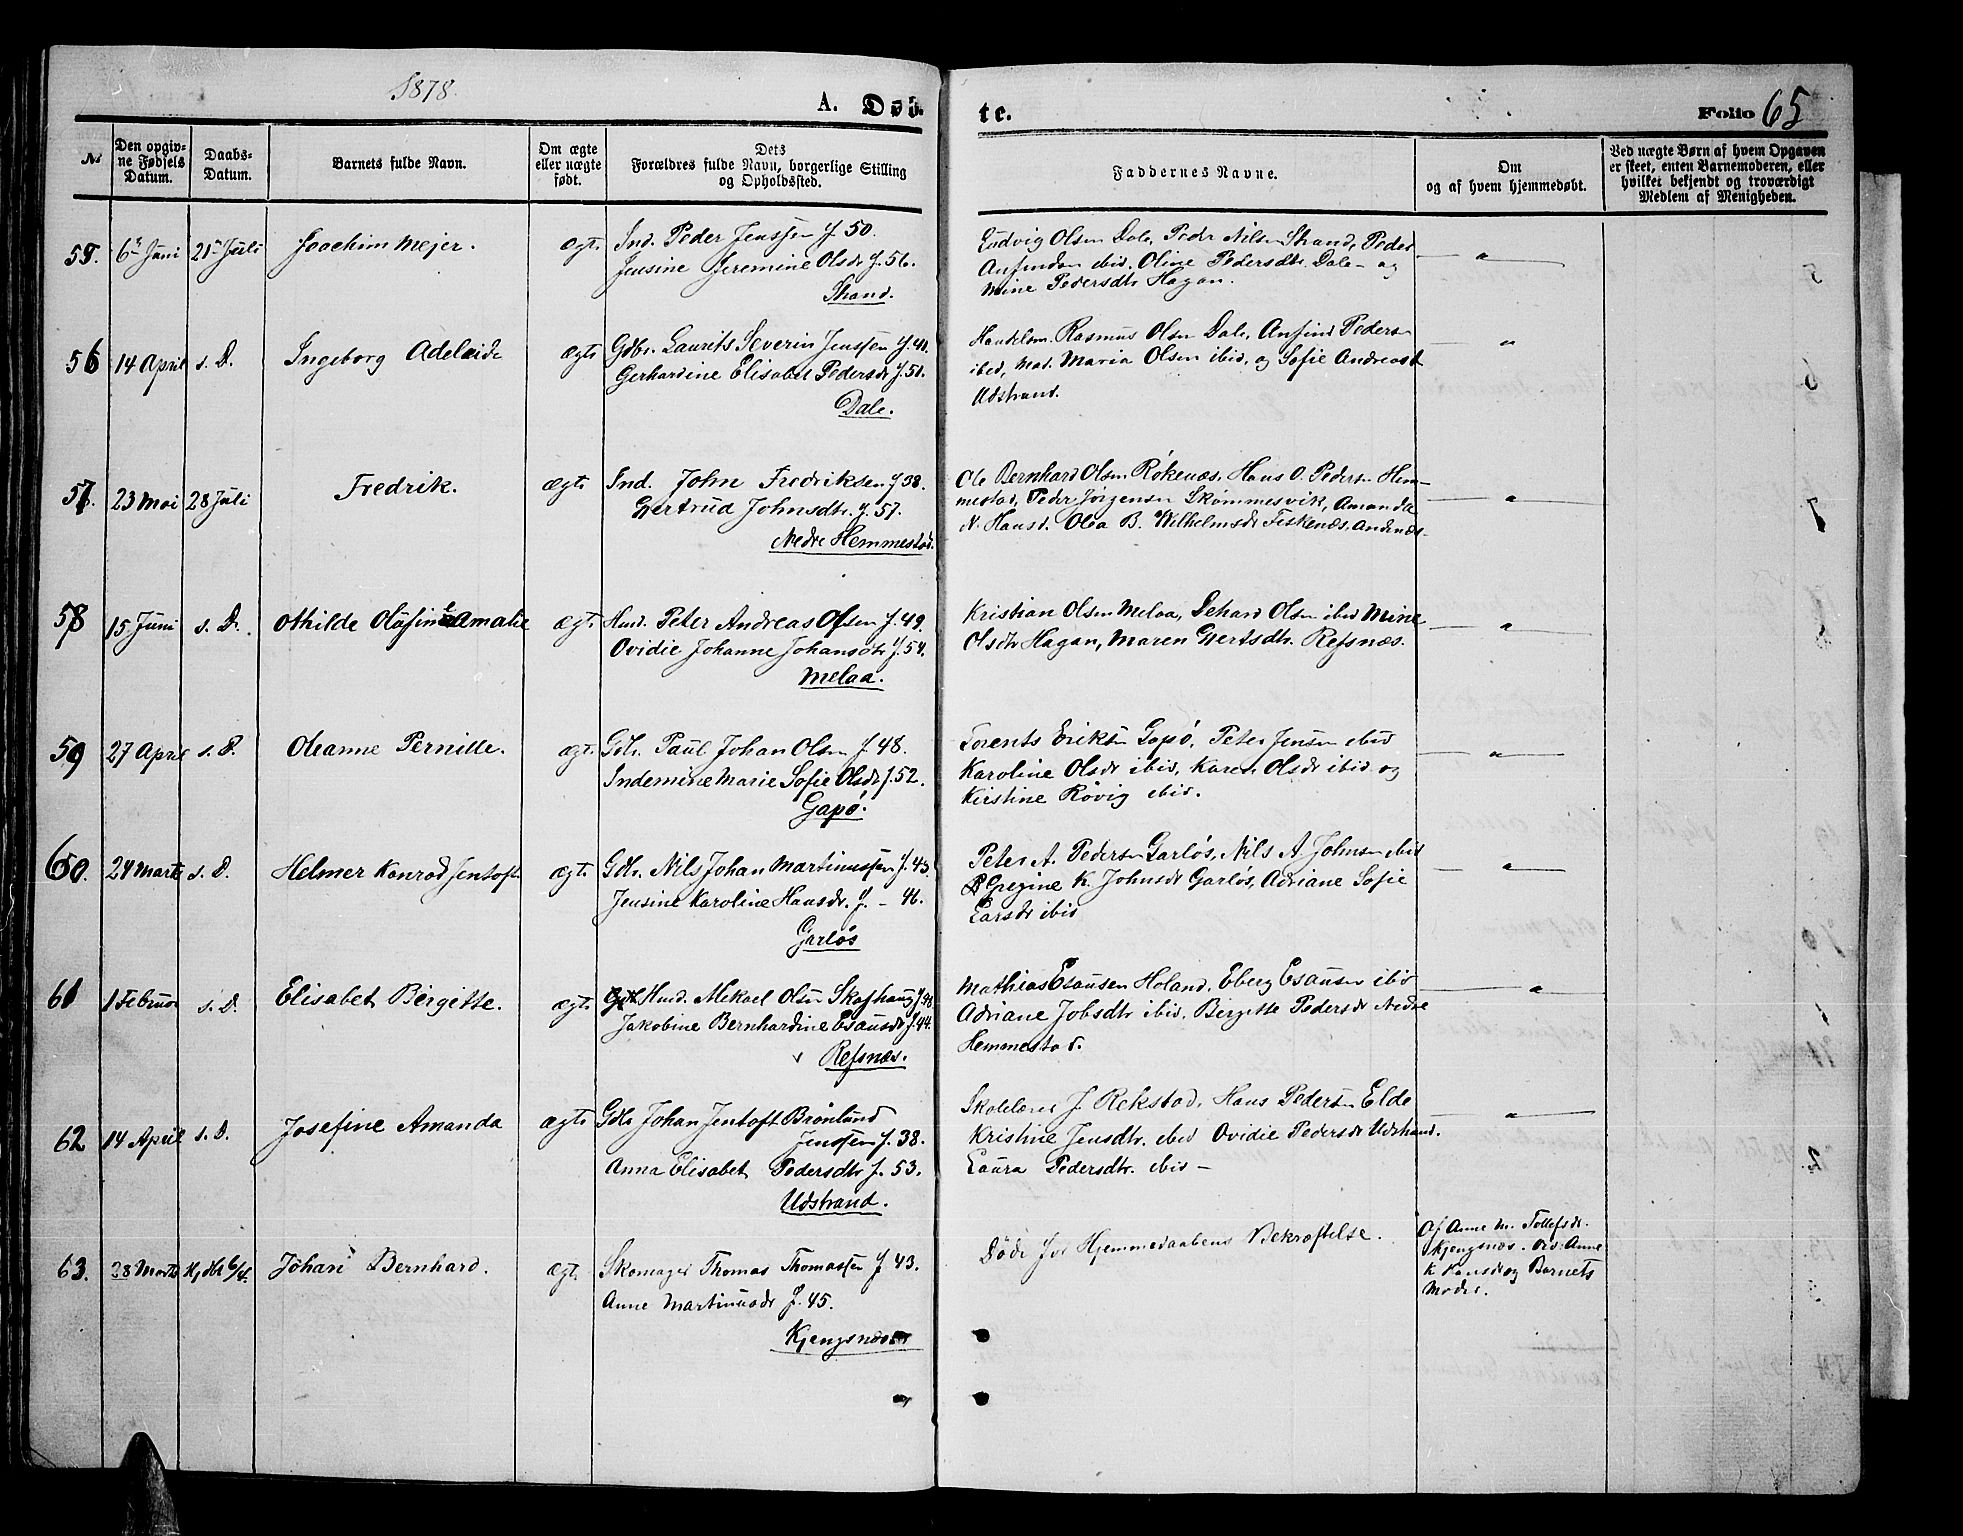 1878.
A. Døb-
te.
Folio 65
No
Den opgiv-
ne Fødsels
Datum.
Daabs-
Datum.
Barnets fulde Navn.
Om ægte
eller uægte
født.
Dets
Forældres fulde Navn, borgerlige Stilling
og Opholdssted.
Faddernes Navne.
Om
og af hvem hjemmedøbt.
Ved uægte Børn af hvem Opgaven
er skeet, enten Barnemoderen, eller
hvilket bekjendt og troværdigt
Medlem af Menigheden.
55. 6te Juni 21de Juli Joachim Mejer. ægt. Ind. Peder Jenssen f. 50.
Jensine Jeremine Olsdr f. 56.
Strand.
Ludvig Olsen Dale, Peder Nilsen Strand, Peder
Anfindsen ibid. Oline Pedersdtr. Dale - og
Mine Pedersdtr Hagan.
— " —
56 14 April s. D. Ingeborg Adelaide ægt. Gdbr. Laurits Severin Jenssen f. 41.
Gerhardine Elisabet Pedersdr f. 51.
Dale.
Handelsm. Rasmus Olsen Dale, Anfind Pedersen
ibid, Mad. Maria Olsen ibid, og Sofie Andreasd
Udstrand.
— " —
57. 23 Mai 28 Juli Fredrik. ægt. Ind. John Fredriksen f. 38.
Gertrud Johnsdtr. f. 57.
Nedre Hemmestad.
Ole Bernhard Olsen Røkenæs, Hans O. Pedersen Hem-
mestad, Peder Jørgensen Skømmesvik, Amanda
N. Hansd. Olea B. Wilhelmsdr Fiskenæs, Andenæs.
— " —
58 15 Juni s. D. Othilde Olafine Amalie ægt. Hmd. Peter Andreas Olsen f. 49.
Ovidie Johanne Johansdtr f. 54.
Melaa.
Kristian Olsen Melaa, Gehard Olsen ibid Mine
Olsdtr Hagan, Maren Gjertsdtr. Refsnæs.
— " —
59 27 April s. D. Oleanne Pernille. ægt. Gdbr. Paul Johan Olsen f. 48.
Indemine Marie Sofie Olsdr f. 52.
Gapø.
Lorents Eriksen Gapø, Peter Jensen ibid
Karoline Olsdr ibid, Karen Olsdr ibid og
Kirstine Røvig ibid.
— " —
60. 24 Marts s. D. Helmer Konrad Jentoft ægt. Gdbr. Nils Johan Martinussen f. 43.
Jensine Karoline Hansdr. f. - 46.
Garløs
Peter A. Pedersen Garløs, Nils A. Johnsen ibid
Gregine K. Johnsdr Garløs, Adriane Sofie
Larsdr ibid
— " —
61 1 Februar s. D. Elisabet Birgitte. ægt. Hmd. Mekael Olsen Skafhaug f. 48
Jakobine Bernhardine Esausdr f. 44.
Refsnæs.
Mathias Esausen Holand, Eberg Esausen ibid
Adriane Jobsdtr ibid. Birgitte Pedersdr Nedre
Hemmestad.
— " —
62 14 April s. D. Josefine Amanda ægt. Gdbr Johan Jentoft Brønlund
Jenssen f. 38.
Anna Elisabet Pedersdtr f. 53.
Udstrand.
Skolelærer J. Rekstad, Hans Pedersen Elde
Kristine Jensdtr. ibid Ovidie Pedersdr Udstrand.
Laura Pedersdtr. ibid -
— " —
63. 28 Marts Hjdbt 6/4. Johan Bernhard. ægt. Skomager Thomas Thomassen f. 43.
Anne Martinusdr f. 45.
Kjengsnæs
Døde før Hjemmedaabens Bekræftelse.
Af Anne M. Tollefsdr.
Kjengsnæs. Vid: Anne
K Hansdr og Barnets
Moder.